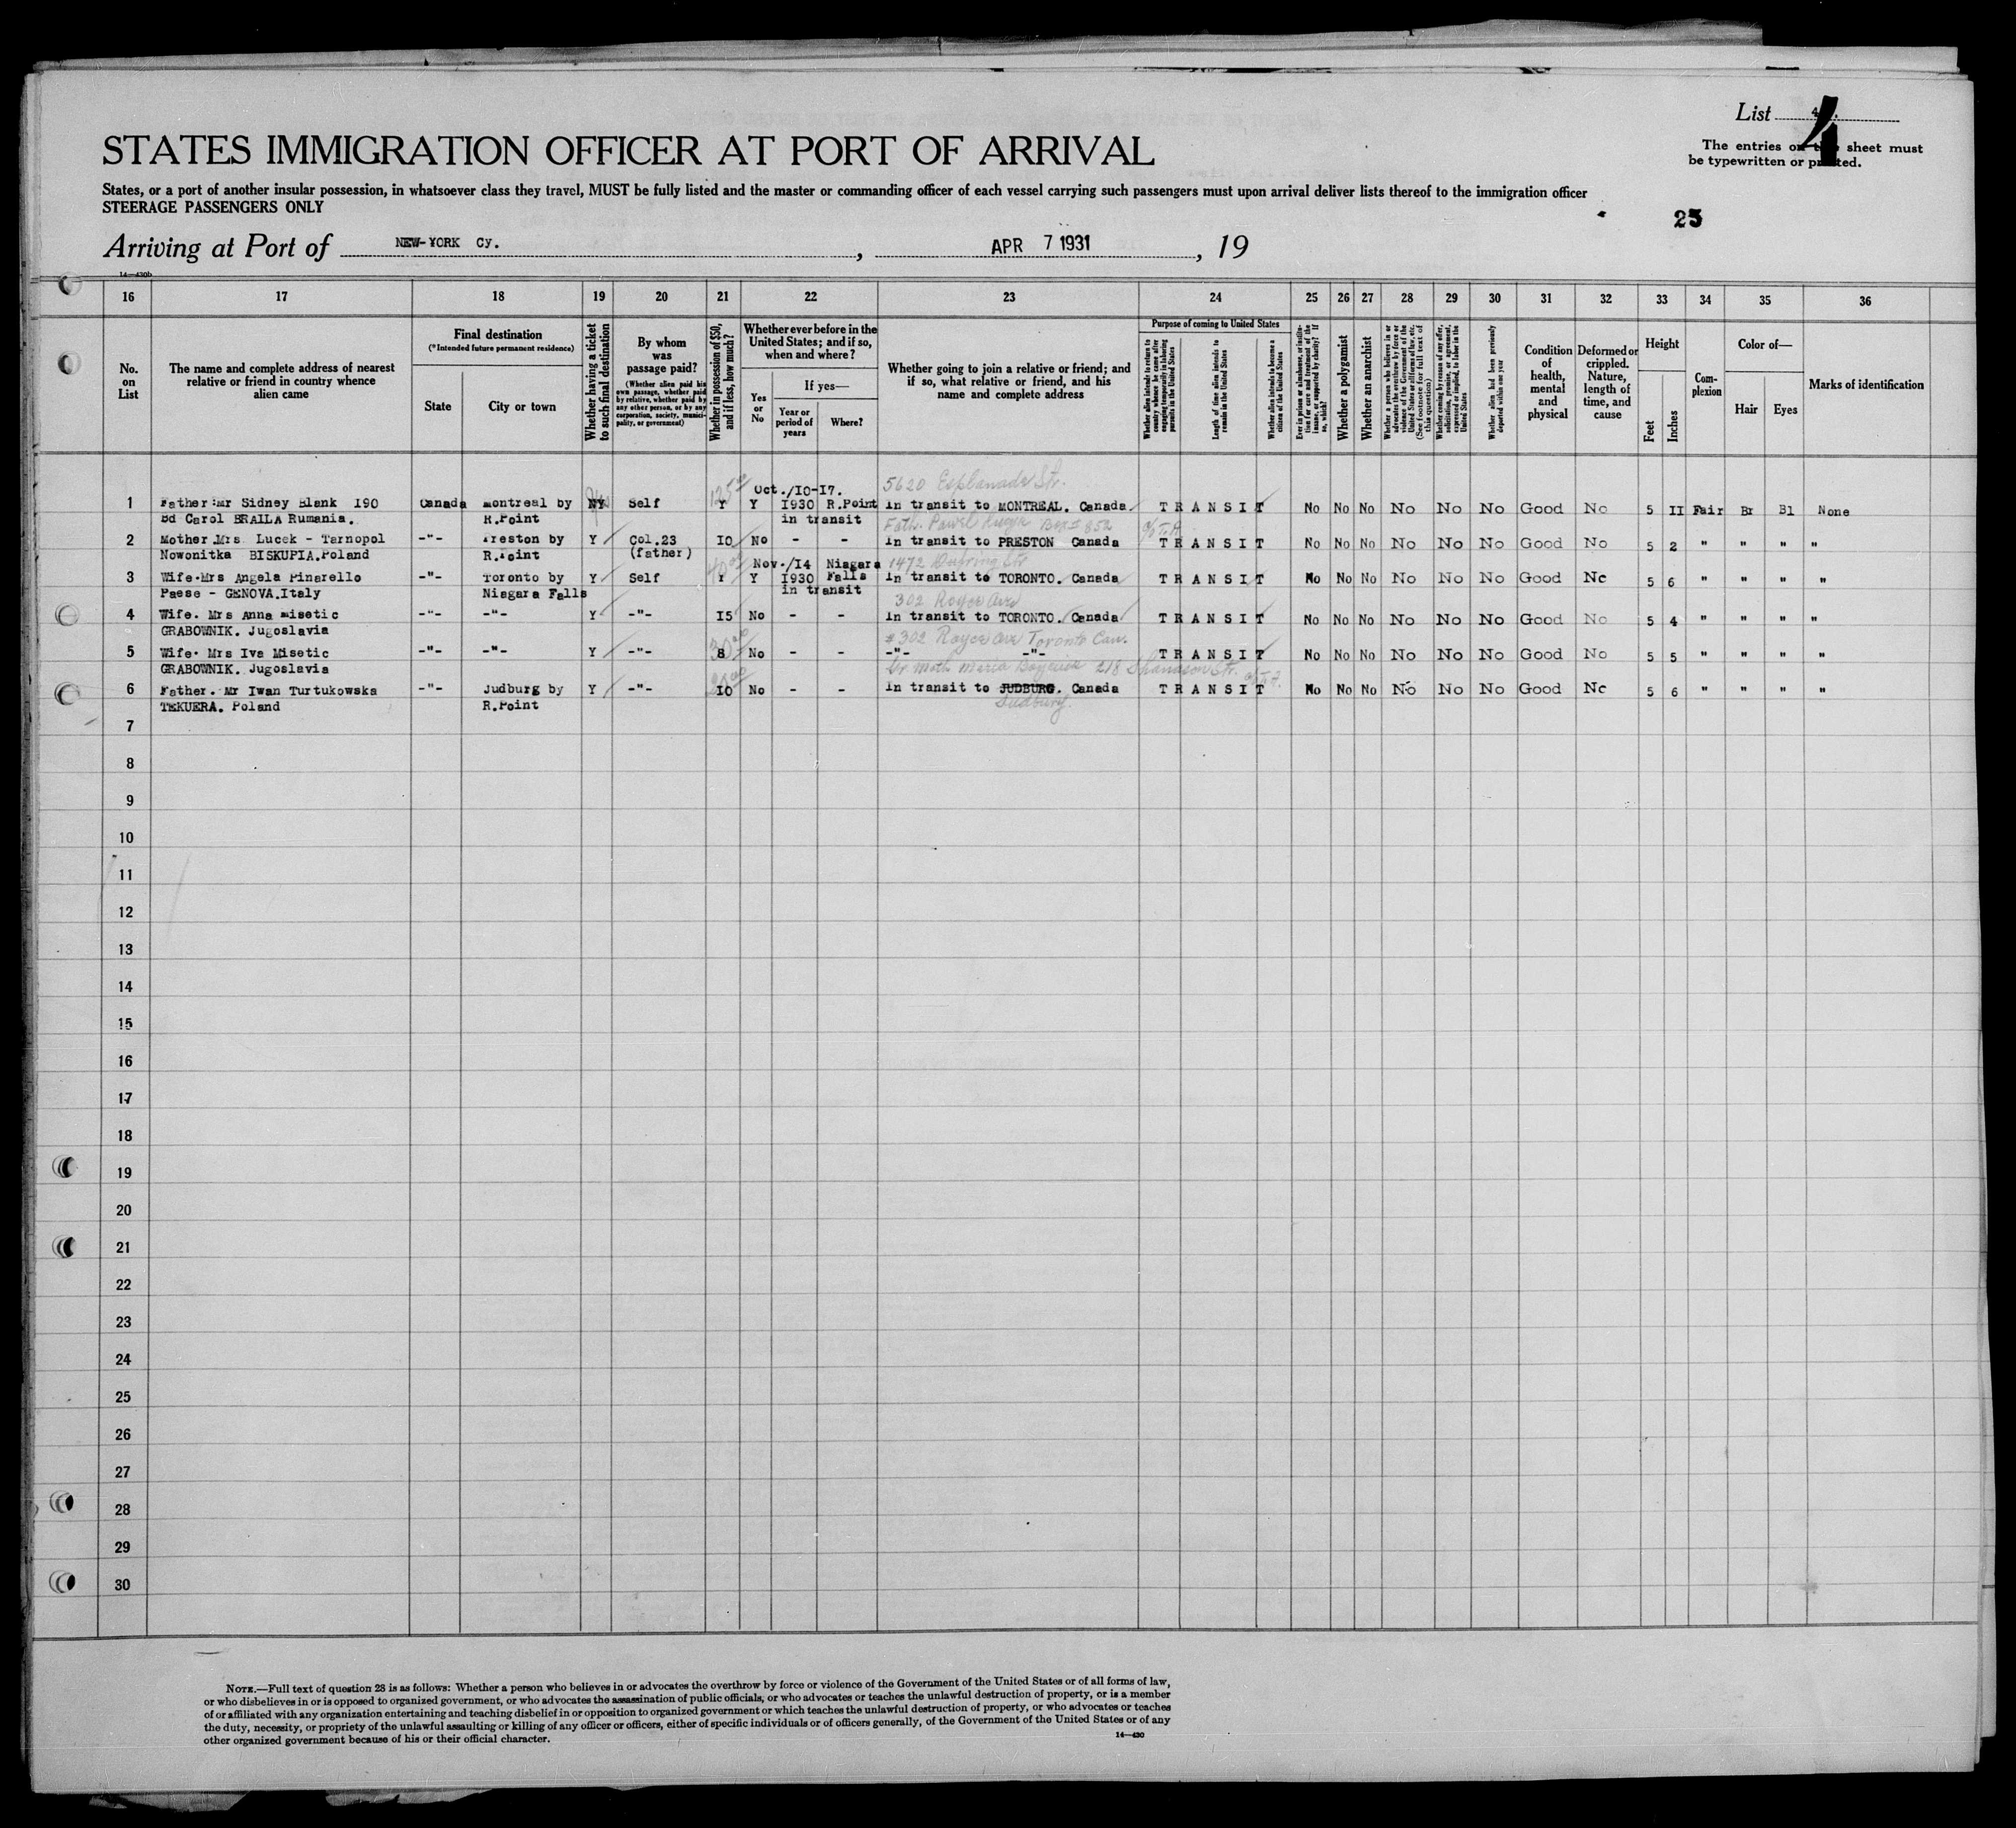 List 4
The entries on this sheet must
be typewritten or printed.
STATES IMMIGRATION OFFICER AT PORT OF ARRIVAL
States, or a port of another insular possession, in whatsoever class they travel, MUST be fully listed and the master or commanding officer of each vessel carrying such passengers must upon arrival deliver lists thereof to the immigration officer
STEERAGE PASSENGERS ONLY
23
Arriving at Port of NEW-YORK Cy. , APR 7 1931 , 19
14—430b
16 17 18 19 20 21 22 23 24 25 26 27 28 29 30 31 32 33 34 35 36
No. on List
The name and complete address of nearest relative or friend in country whence alien came
Final destination
(*Intended future permanent residence)
State
City or town
Whether having a ticket to such final destination
By whom was passage paid?
(Whether alien paid his own passage, whether paid by relative, whether paid by any other person, or by any corporation, society, municipality, or government)
Whether in possession of $50, and if less, how much?
Whether ever before in the United States; and if so, when and where?
Yes or No
If yes—
Year or period of years
Where?
Whether going to join a relative or friend; and if so, what relative or friend, and his name and complete address
Purpose of coming to United States
Whether alien intends to return to country whence he came after engaging temporarily in laboring pursuits in the United States
Length of time alien intends to remain in the United States
Whether alien intends to become a citizen of the United States
Ever in prison or almshouse, or institution for care and treatment of the insane, or supported by charity? If so, which?
Whether a polygamist
Whether an anarchist
Whether a person who believes in or advocates the overthrow by force or violence of the Government of the United States or all forms of law, etc. (See footnote for full text of this question)
Whether coming by reason of any offer, solicitation, promise, or agreement, expressed or implied, to labor in the United States
Whether alien had been previously deported within one year
Condition of health, mental and physical
Deformed or crippled. Nature, length of time, and cause
Height
Feet
Inches
Complexion
Color of—
Hair
Eyes
Marks of identification
Oct./10-17. 5620 Esplanade Str.
1 Father:Mr Sidney Blank 190 Canada Montreal by NY Self Y Y 1930 R.Point In transit to MONTREAL. Canada TRANSIT No No No No No No Good No 5 II Fair Br Bl None
Bd Carol BRAILA Rumania. R.Point in transit Fath. Pawel Box 852
2 Mother.Mrs Lucek - Tarnopol -"- Preston by Y Col.23 10 No - - In transit to PRESTON Canada TRANSIT No No No No No No Good No 5 2 " " " "
Nowonitka BISKUPIA.Poland R.Point (father) Nov./14 Niagara 1472
3 Wife.Mrs Angela Pinarello -"- Toronto by Y Self Y Y 1930 Falls In transit to TORONTO. Canada TRANSIT No No No No No No Good No 5 6 " " " "
Paese - GENOVA.Italy Niagara Falls in transit 302 Royce Ave
4 Wife. Mrs Anna Misetic -"- -"- Y -"- 15 No - - In transit to TORONTO. Canada TRANSIT No No No No No No Good No 5 4 " " " "
GRABOWNIK. Jugoslavia #302 Royce Ave Toronto Can.
5 Wife. Mrs Iva Misetic -"- -"- Y -"- 8 No - - -"- -"- TRANSIT No No No No No No Good No 5 5 " " " "
GRABOWNIK. Jugoslavia Maria 218
6 Father. Mr Iwan Turtukowska -"- Judburg by Y -"- 10 No - - In transit to JUDBURG. Canada TRANSIT No No No No No No Good No 5 6 " " " "
TEKUERA. Poland R.Point Sudbury.
7
8
9
10
11
12
13
14
15
16
17
18
19
20
21
22
23
24
25
26
27
28
29
30
NOTE.—Full text of question 28 is as follows: Whether a person who believes in or advocates the overthrow by force or violence of the Government of the United States or of all forms of law,
or who disbelieves in or is opposed to organized government, or who advocates the assassination of public officials, or who advocates or teaches the unlawful destruction of property, or is a member
of or affiliated with any organization entertaining and teaching disbelief in or opposition to organized government or which teaches the unlawful destruction of property, or who advocates or teaches
the duty, necessity, or propriety of the unlawful assaulting or killing of any officer or officers, either of specific individuals or of officers generally, of the Government of the United States or of any
other organized government because of his or their official character.
14—430